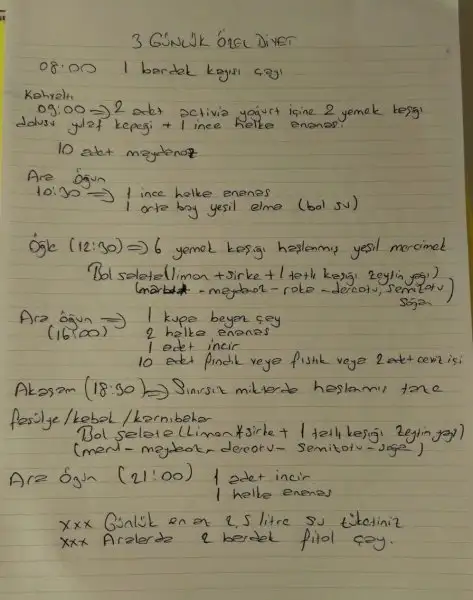 3 GÜNLÜK ÖZEL DİYET
08:00 1 bardak kayısı çayı
Kahvaltı
09:00 => 2 adet activia yoğurt içine 2 yemek kaşığı
dolusu yulaf kepeği + 1 ince halka ananas.
10 adet maydanoz
Ara öğün
10:30 => 1 ince halka ananas
1 orta boy yeşil elma (bol su)
Öğle (12:30) => 6 yemek kaşığı haşlanmış yeşil mercimek
Bol salata (limon + sirke + 1 tatlı kaşığı zeytin yağı)
- maydanoz - roka - dereotu, semizotu)
Soğan
Ara öğün => 1 kupa beyaz çay
(16:00) 2 halka ananas
1 adet incir
10 adet fındık veya fıstık veya 2 adet ceviz içi
Akşam (18:30) => Sınırsız miktarda haşlanmış taze
fasülye / kabak / karnıbahar
Bol salata (Limon + sirke + 1 tatlı kaşığı zeytin yağı)
(marul - maydanoz - dereotu - semizotu - soğan)
Ara öğün (21:00) 1 adet incir
1 halka ananas
xxx Günlük en az 2,5 litre su tüketiniz
xxx Aralarda 2 bardak fitol çay.